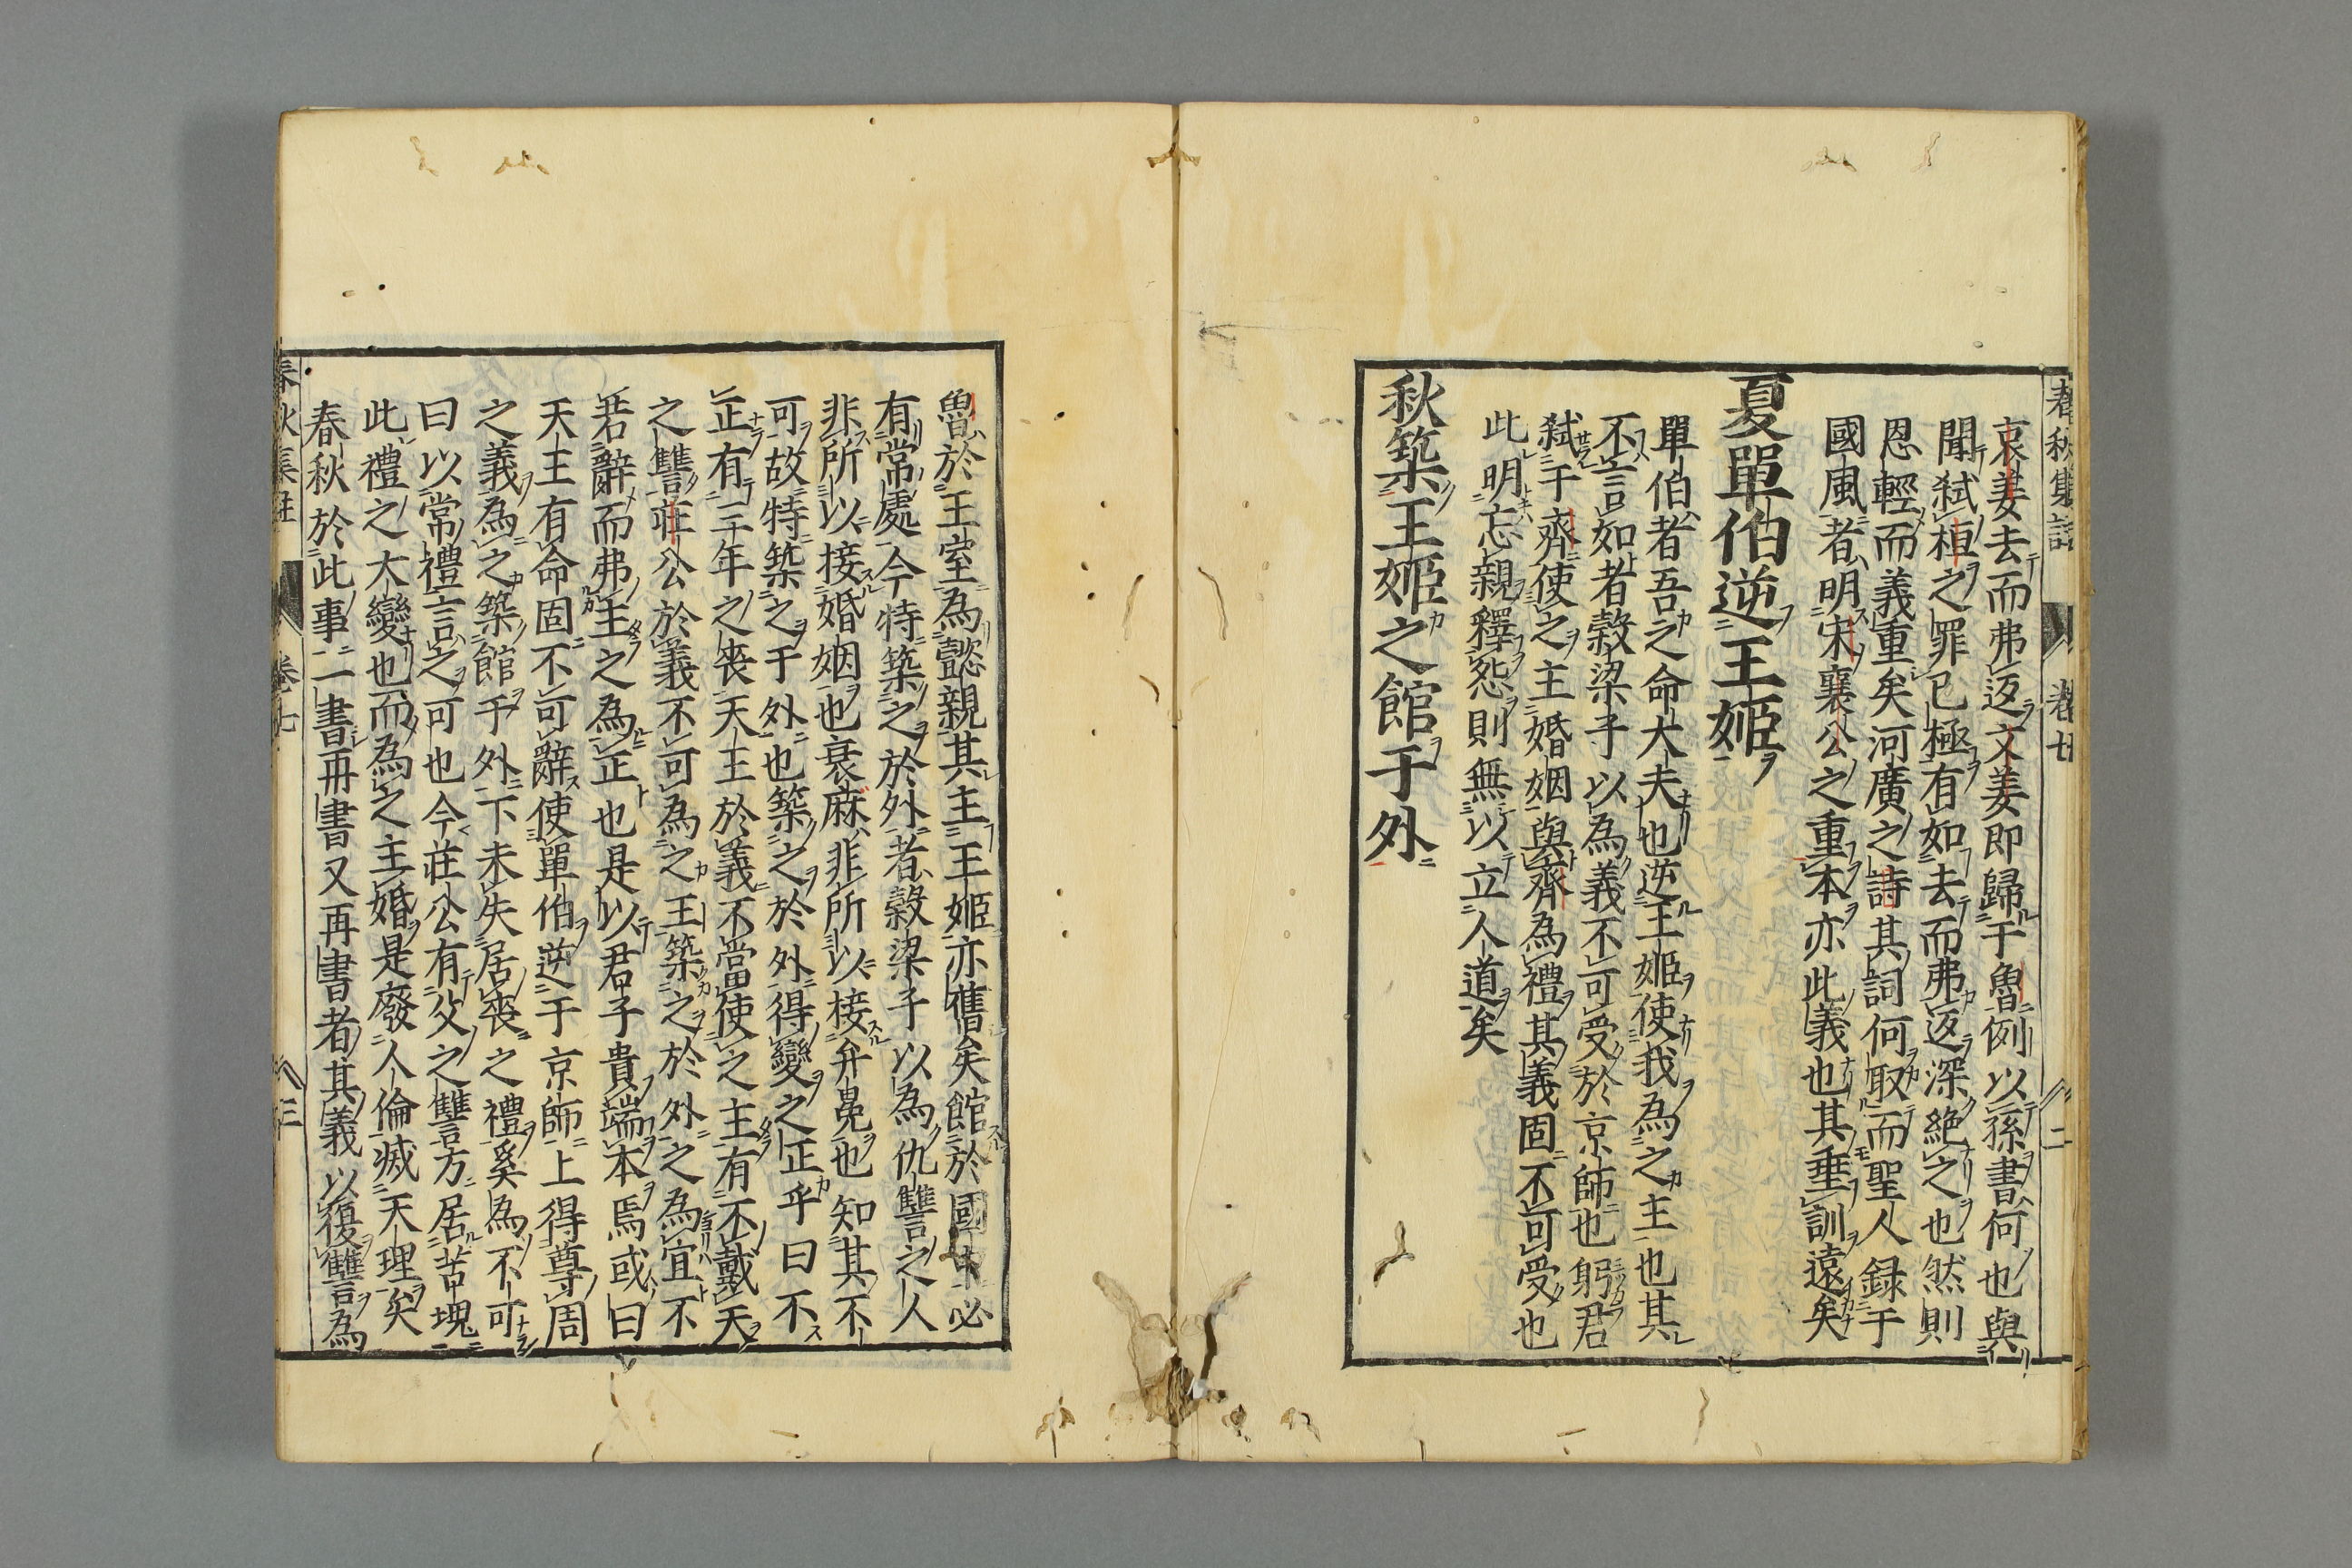 哀姜去而弗返文姜即歸于魯例以孫書何也與
聞弑桓之罪已極有如去而弗返深絶之也然則
恩輕而義重矣河廣之詩其詞何取而聖人録于
國風者明宋襄公之重本亦此義也其垂訓遠矣
夏單伯逆王姬
單伯者吾之命大夫也逆王姬使我為之主也其
不言如者穀梁子以為義不可受於京師也躬君
弑于齊使之主婚姻與齊為禮其義固不可受也
此明忘親釋怨則無以立人道矣
秋築王姬之館于外
魯於王室為懿親其主王姬亦舊矣館於國中必
有常處今特築之於外者穀梁子以為仇讐之人
非所以接婚姻也衰麻非所以接弁冕也知其不
可故特築之于外也築之於外得變之正乎曰不
正有三年之喪天王於義不當使之主有不戴天
之讐莊公於義不可為之王築之於外之為宜不
若辭而弗主之為正也是以君子貴端本焉或曰
天王有命固不可辭使單伯逆于京師上得尊周
之義為之築館于外下未失居喪之禮奚為不可
曰以常禮言之可也今莊公有父之讐方居苫塊
此禮之大變也而為之主婚是廢人倫滅天理矣
春秋於此事一書再書又再書者其義以復讐為
春秋集註 卷七 三